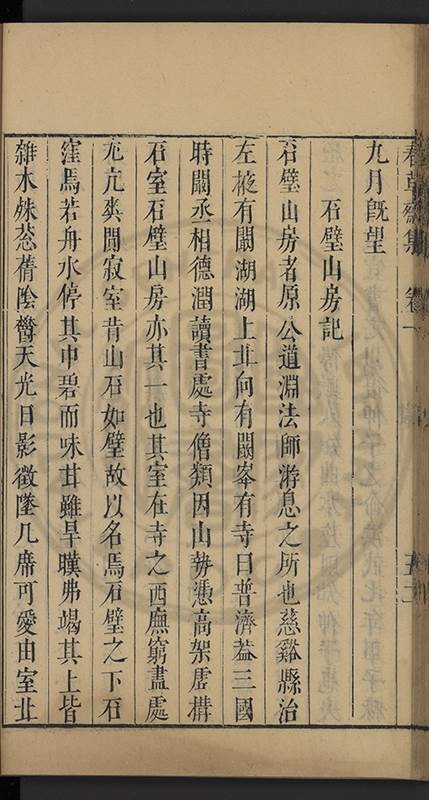 春草齋集 卷一
九月旣望
石壁山房記
石壁山房者原公道淵法師游息之所也慈谿縣治
左掖有闞湖湖上北向有闞峯有寺曰普濟葢三國
時闞丞相德潤讀書處寺僧類因山勢憑高架虛構
石室石壁山房亦其一也其室在寺之西廡窮盡處
尤亢爽閒寂室背山石如壁故以名焉石壁之下石
窪焉若舟水停其中碧而味甘雖旱暵弗竭其上皆
雜木殊蔥蒨陰欝天光日影徵墜几席可愛由室北